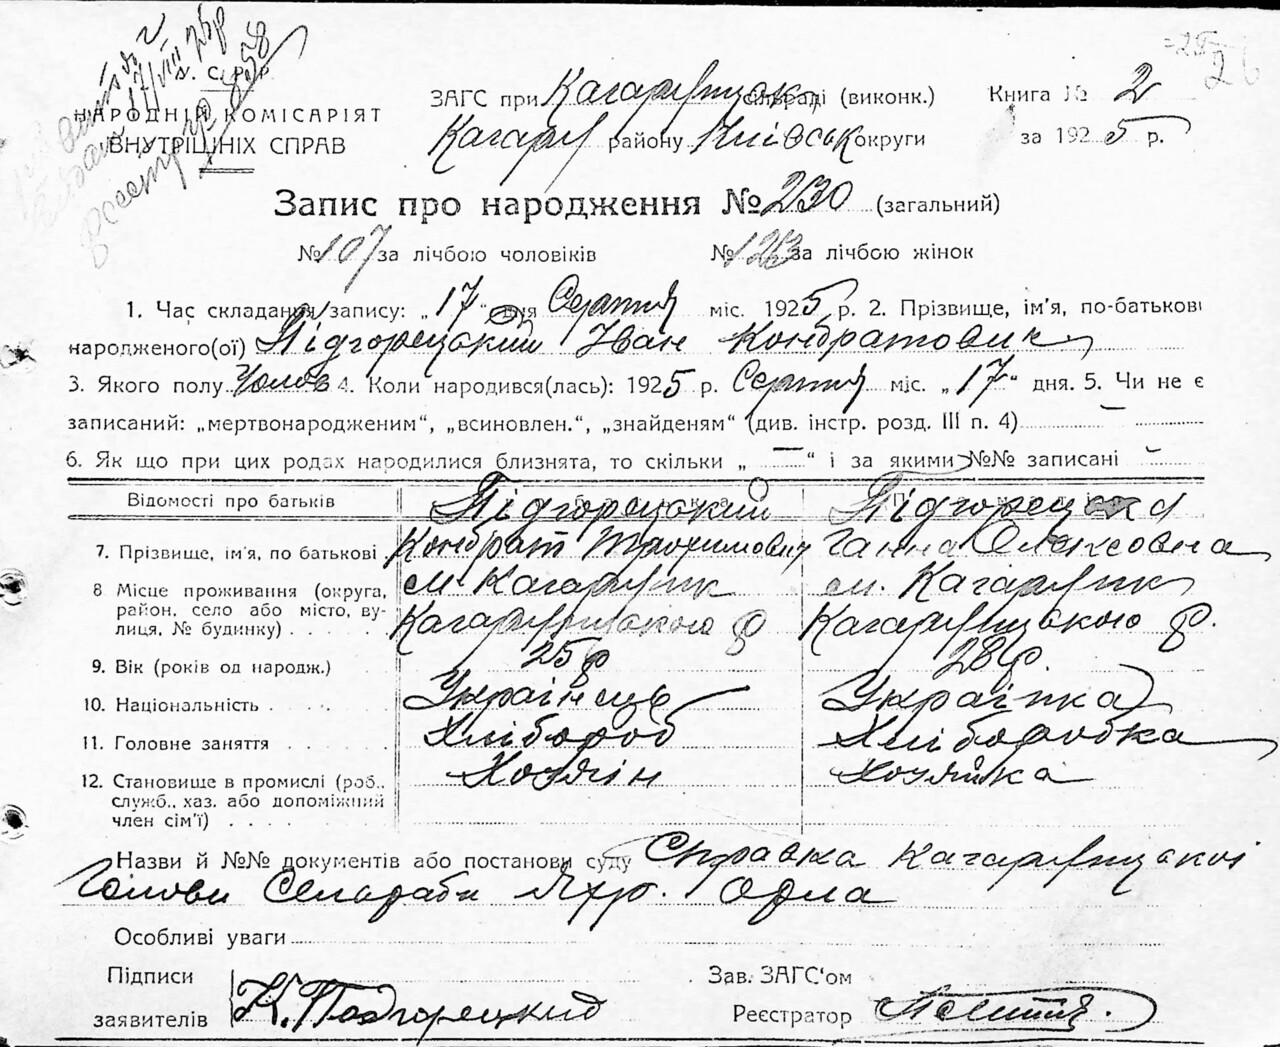 17/VIII 25р
858
У. С. Р. Р.
НАРОДНІЙ КОМІСАРІЯТ
ВНУТРІШНІХ СПРАВ
ЗАГС при Кагарлицьк сільраді (виконк.) Книга № 2
Кагарл району Київськ округи за 1925 р.
Запис про народження № 230 (загальний)
№ 107 за лічбою чоловіків № 123 за лічбою жінок
1. Час складання запису: „17“ дня Серпня міс. 1925 р. 2. Прізвище, ім'я, по-батькові
народженого(ої) Підгорецький Іван Кондратович
3. Якого полу Чолов 4. Коли народився(лась): 1925 р. Серпня міс. „17“ дня. 5. Чи не є
записаний: „мертвонародженим“, „всиновлен.“, „знайденям“ (див. інстр. розд. III п. 4) —
6. Як що при цих родах народилися близнята, то скільки „ — “ і за якими №№ записані —
Відомості про батьків
7. Прізвище, ім'я, по батькові Підгорецький Кондрат Трохимович Підгорецька Ганна Олексовна
8 Місце проживання (округа, район, село або місто, вулиця, № будинку) м. Кагарлик Кагарлицького р м. Кагарлик Кагарлицького р.
9. Вік (років од народж.) 25 р 28 р.
10. Національність Українець Українка
11. Головне заняття Хлібороб Хліборобка
12. Становище в промислі (роб., служб., хаз. або допоміжний член сім'ї) Хозяїн Хозяйка
Назви й №№ документів або постанови суду Справка Кагарлицької
Голови Сельради
Особливі уваги
Підписи Зав. ЗАГС'ом
заявителів К. Подгорецкий Реєстратор